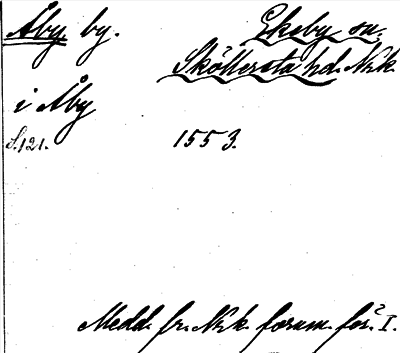 Åby by.
Ekeby sn.
Sköllersta hd. Nrk.
i Åby
S.121.
1553.
Medd. fr. Nrk. fornm. för. I.